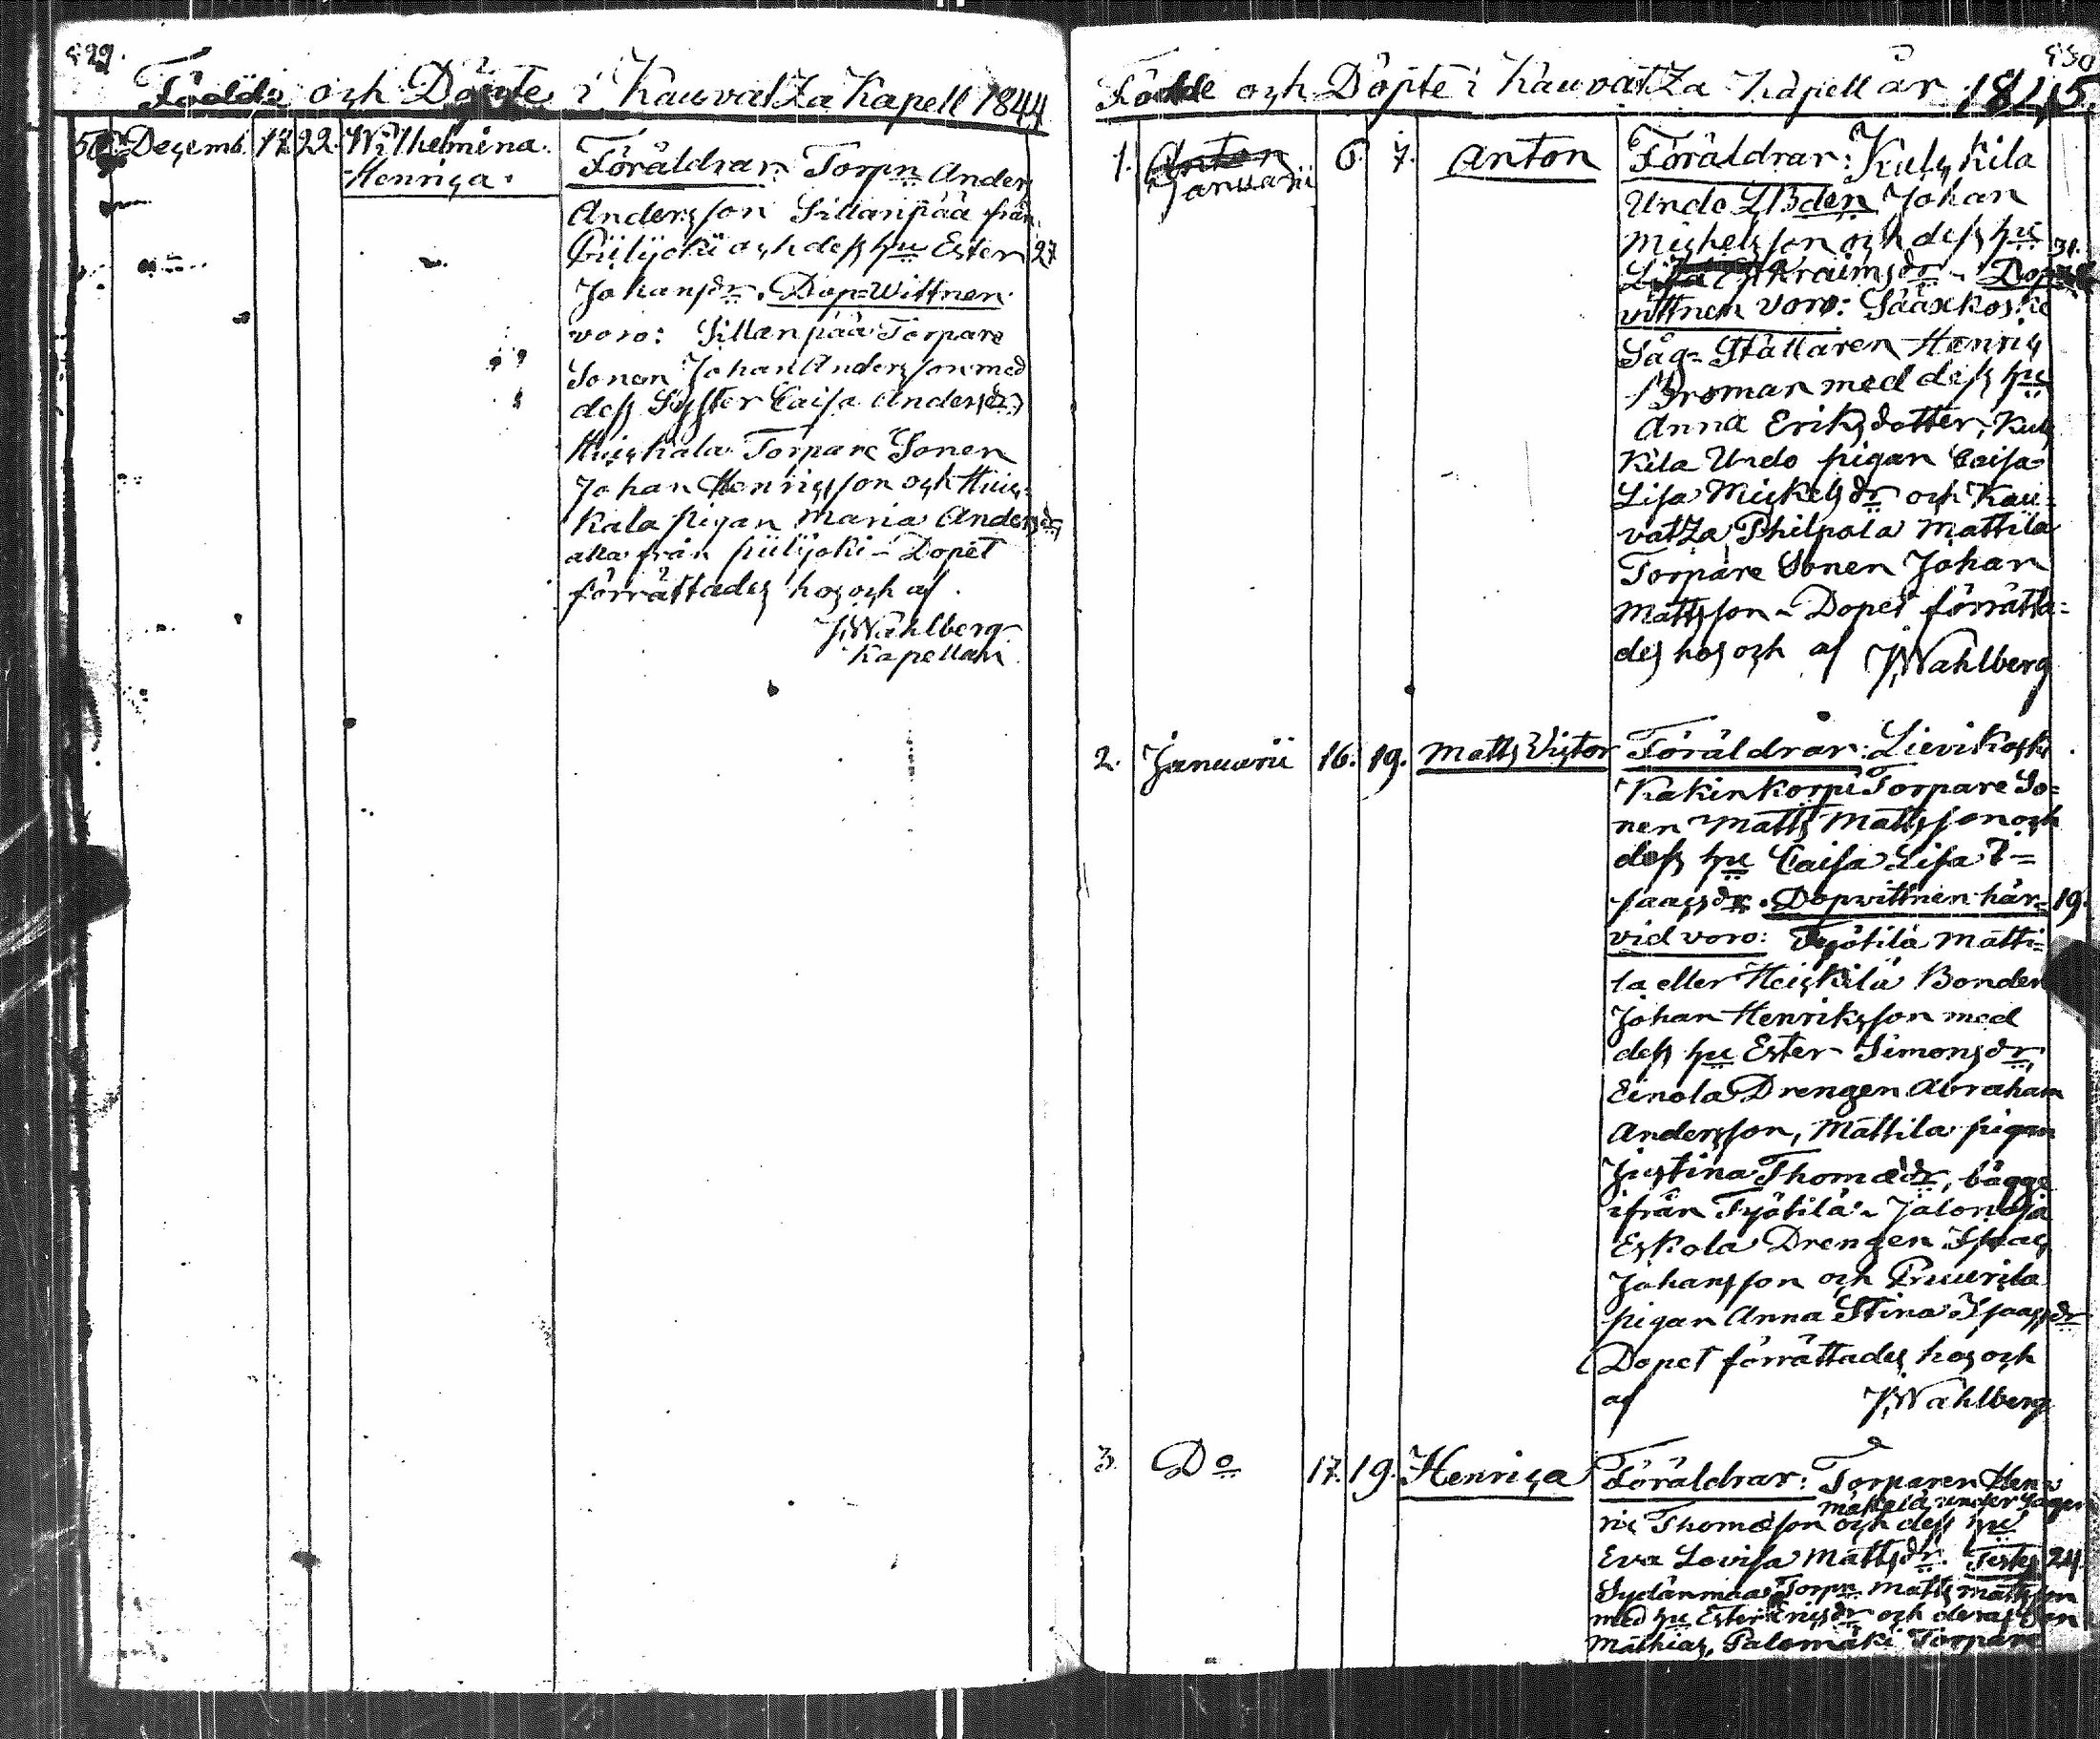 529.
Födde och Döpte i Kauvatza Kapell 1844
50 Decemb. 17. 22. Wilhelmina
Henrica.
Föräldrar: Torpn Anders
Andersson Sillanpää från
Piilijoki och dess hu Ester 27
Johansdr. Dop-Wittnen
voro: Sillanpää Torpare
Sonen Johan Andersson med
dess Syster Caisa Andersdr,
Huiskala Torpare Sonen
Johan Henricsson och Huis-
kala pigan Maria Andersdr
alla från piilijoki - Dopet
förrättades hos och af
J. Wahlberg
Kapellan
530
Födde och Döpte i Kauvatza Kapell år 1845
1. Anton
Januarii 6. 7. Anton
Föräldrar: Kulkila
Undo Johan
Michelsson och dess hu 31.
Lisa Ephraimsdr - Dop
vittnen voro: Sääxkoski
Såg-Ställaren Henric
Broman med dess hu
Anna Eriksdotter, Kul
kila Undo pigan Caisa
Lisa Mickelsdr och Kau-
vatza Philpola Mattila
Torpare Sonen Johan
Mattsson - Dopet förrätta-
des hos och af J. Wahlberg
2. Januarii 16. 19. Matts Victor
Föräldrar: Lievikoski
Kakinkorpi Torpare So-
nen Matts Mattsson och
dess hu Caisa Lisa I-
saacsdr. Dopvittnen här- 19.
vid voro: Työtilä Matti-
la eller Heickilä Bonden
Johan Henriksson med
dess hu Ester Simonsdr,
Einola Drengen Abraham
Andersson, Mattila pigan
Justina Thomædr, bägge
ifrån Työtilä - Jalonoja
Eskola Drengen Isaac
Johansson och
pigan Anna Stina Isaacsdr
Dopet förrättades hos och
af J. Wahlberg
3. Do 17. 19. Henrica
Föräldrar: Torparen Hen-
under
ric Thomæson och dess hu
Eva Lovisa Mattsdr. Testes 24.
Sydänmaa Torpn Matts Mattsson
med hu Ester Ericsdr och deras Son
Mathias, Palomäki Torpare